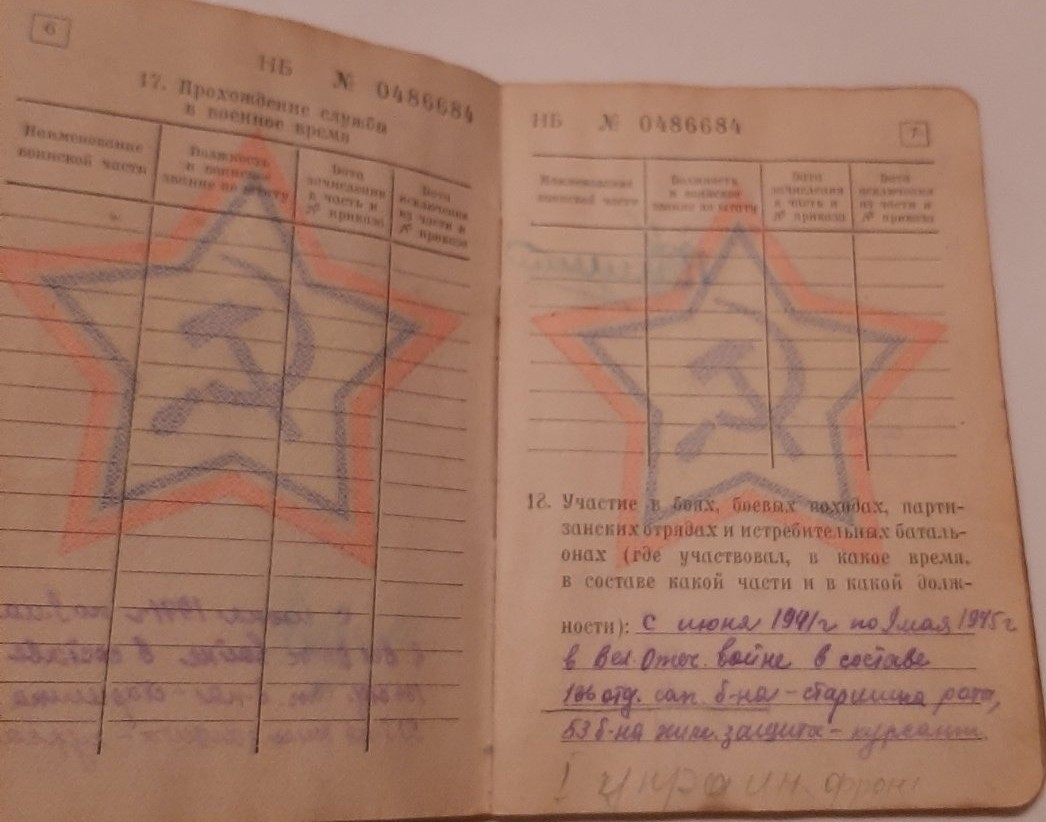 6
НБ № 0486684
17. Прохождение службы
в военное время
Наименование
воинской части
Должность
и воинское
звание по штату
Дата
зачисления
в часть и
№ приказа
Дата
исключения
из части и
№ приказа
НБ № 0486684
7
Наименование
воинской части
Должность
и воинское
звание по штату
Дата
зачисления
в часть и
№ приказа
Дата
исключения
из части и
№ приказа
18. Участие в боях, боевых походах, парти-
занских отрядах и истребительных баталь-
онах (где участвовал, в какое время,
в составе какой части и в какой долж-
ности): с июня 1941г по 9 мая 1945г
в Вел. Отеч. войне в составе
отд. сап. б-на - старшина роты,
53 б-на хим. защиты - курсант
I украин. фронт